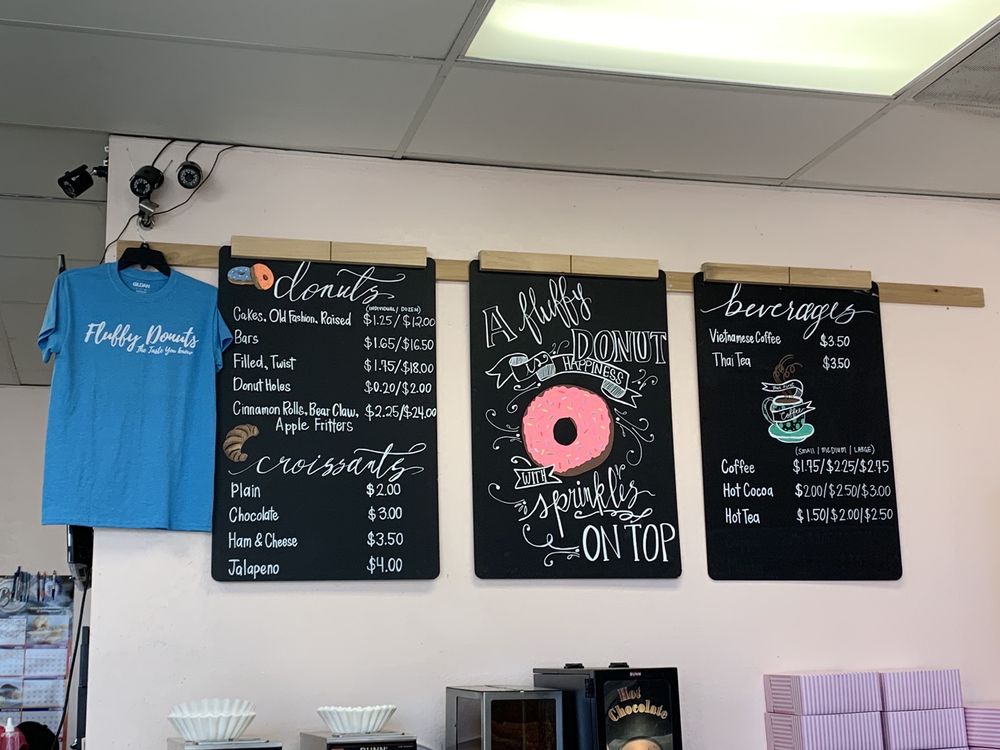 GILDAN
Fluffy Donuts
The Taste You Know
donuts
(INDIVIDUAL / DOZEN)
Cakes, Old Fashion, Raised $1.25/$12.00
Bars $1.65/$16.50
Filled, Twist $1.75/$18.00
Donut Holes $0.20/$2.00
Cinnamon Rolls, Bear Claw, $2.25/$24.00
Apple Fritters
croissants
Plain $2.00
Chocolate $3.00
Ham & Cheese $3.50
Jalapeno $4.00
A fluffy
DONUT
is HAPPINESS
WITH
sprinkles
ON TOP
beverages
Vietnamese Coffee $3.50
Thai Tea $3.50
Coffee
(SMALL / MEDIUM / LARGE)
Coffee $1.75/$2.25/$2.75
Hot Cocoa $2.00/$2.50/$3.00
Hot Tea $1.50/$2.00/$2.50
BUNN
BUNN
Hot
Chocolate